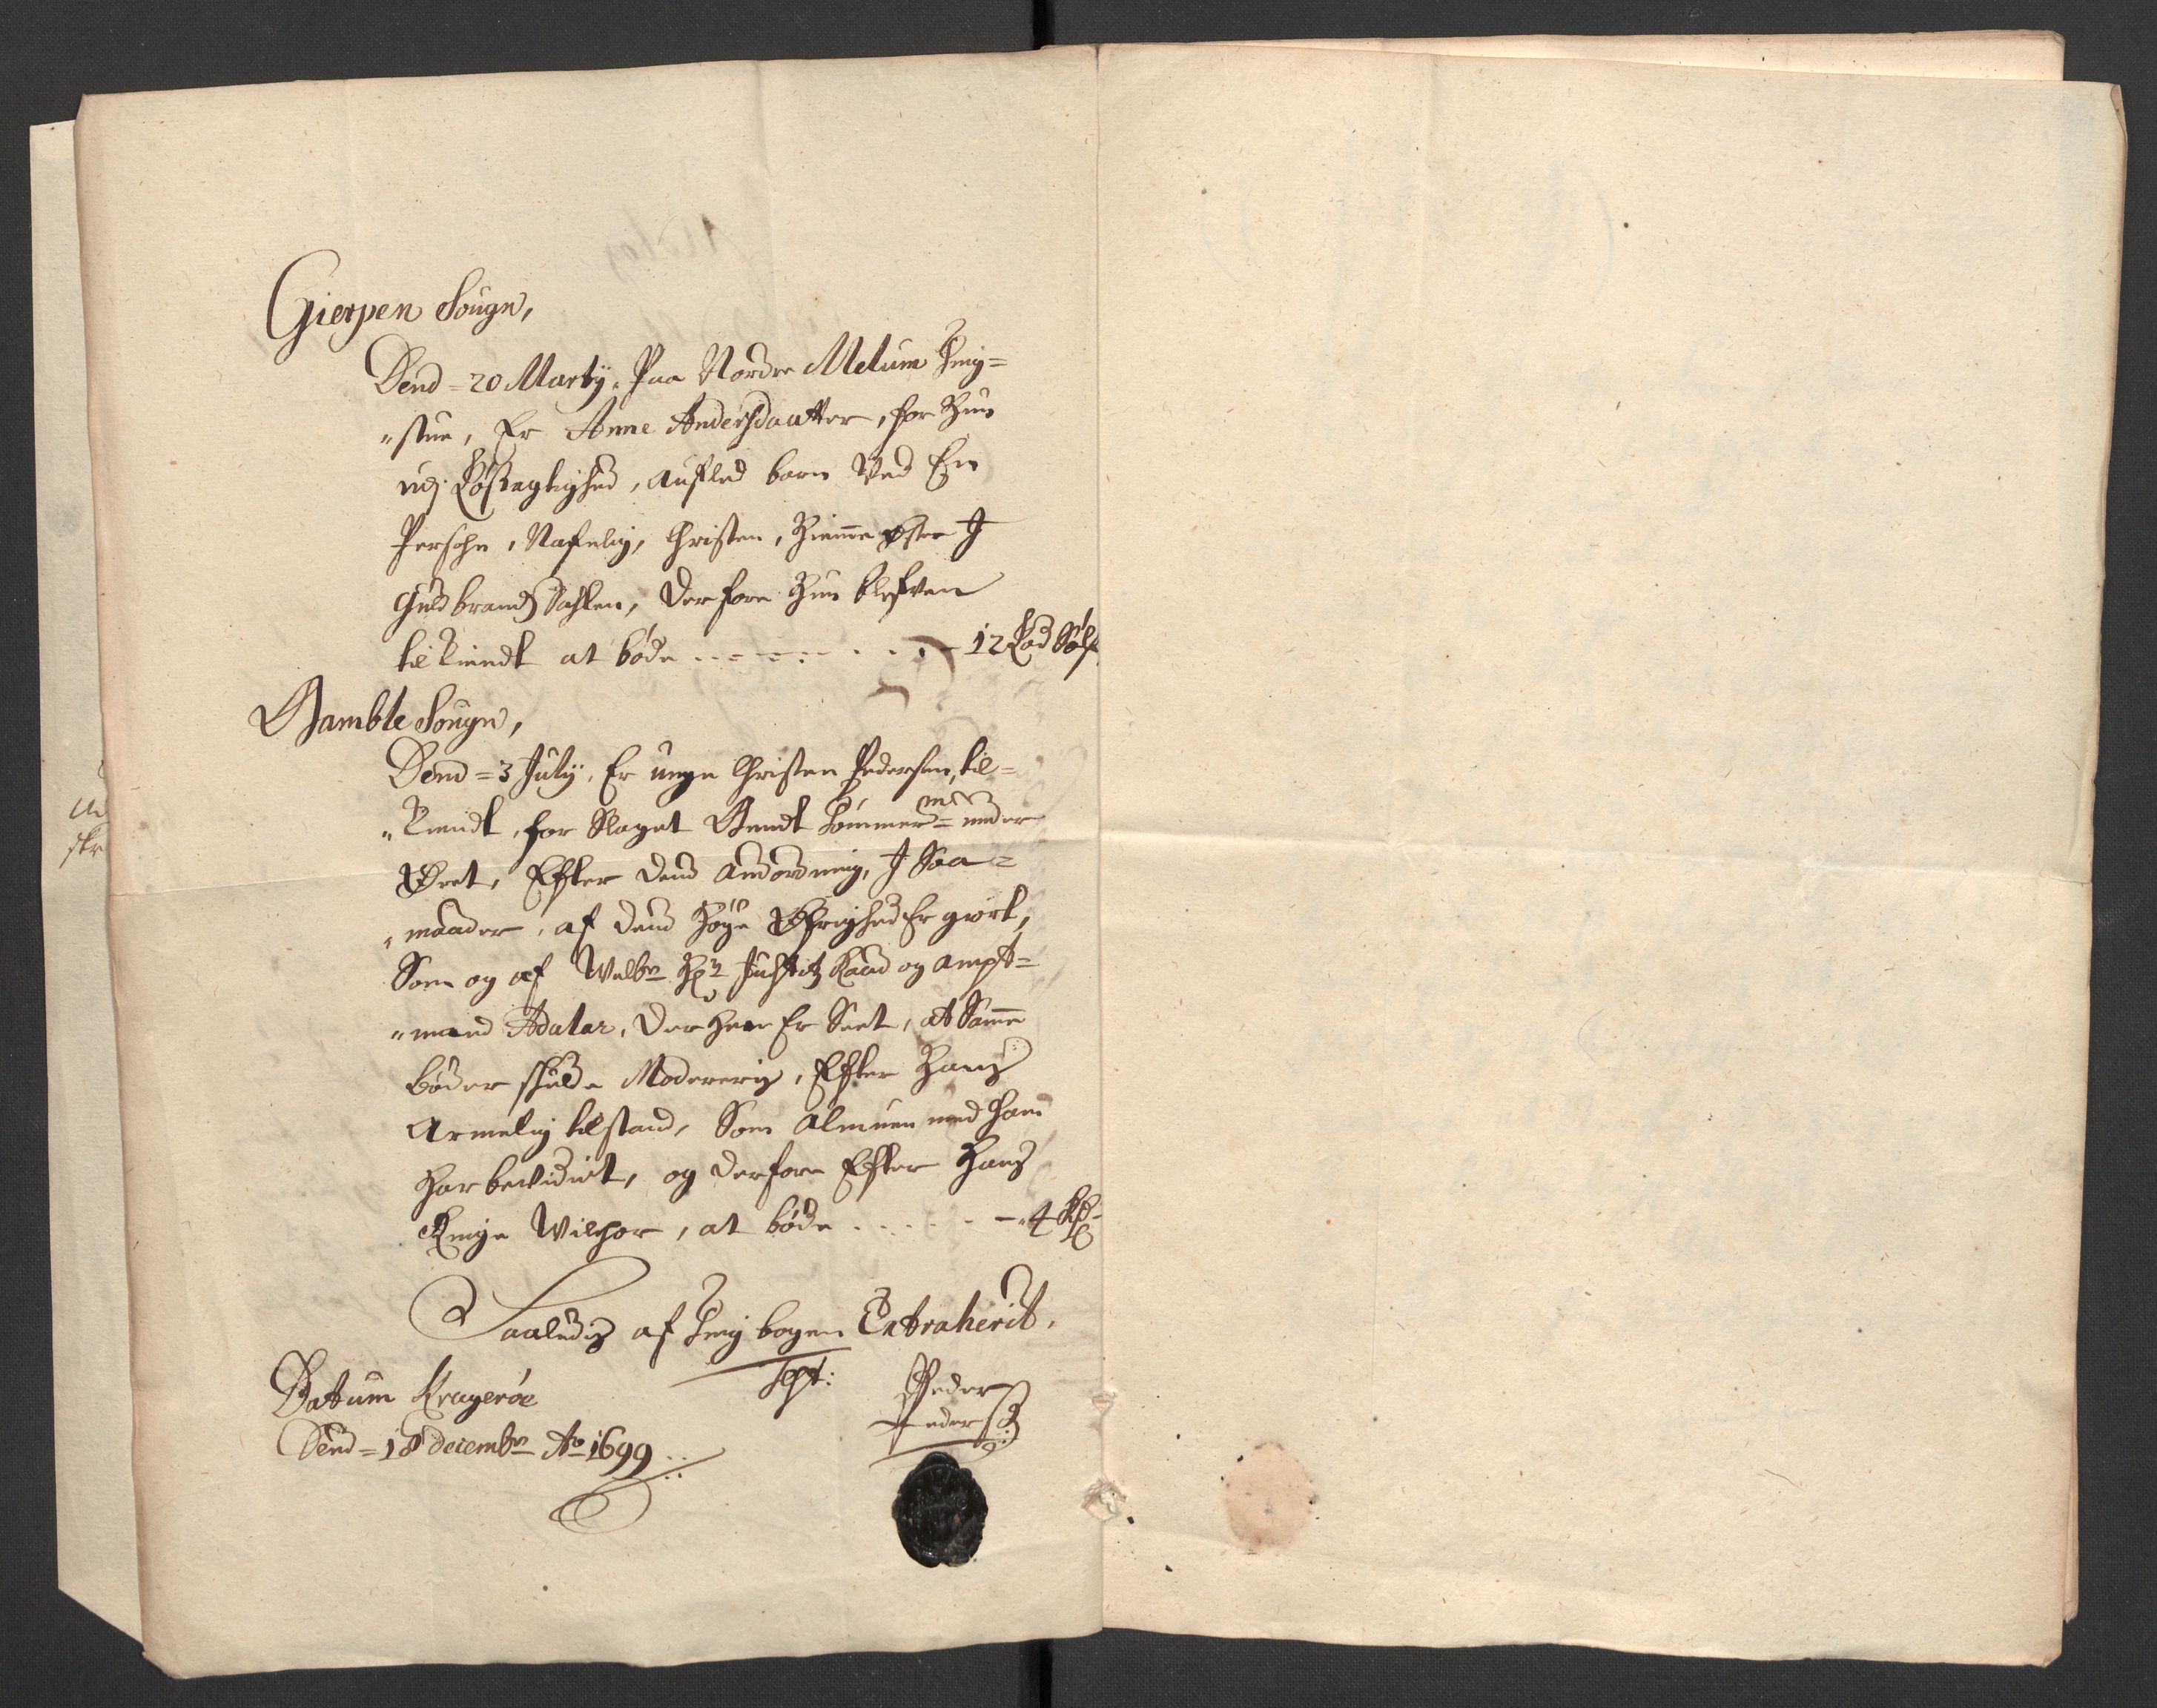 Gierpen Sougn,
Dend = 20 Marty. Paa Nordre Melum Ting=
"stue, Er Anne Andersdaatter, for Hun
udj Løsagtighed, aufled barn Ved En
Persohn, Nafnlig, Christen, Hiemme
Guldbrandsdahlen, Derfore Hun blefven
tilkiendt at bøde - - - - - - 12 Lod Sølf
Bamble Sougn,
Dend = 3 July. Er unge Christen Pedersen, til=
"kiendt, for Slaget Bendt under
Øret, Efter Dend anordning, I Saa=
"maader, af Dend Høye Øfrighed Er giort,
Som og af Welbr Hr Justitz Raad og ampt=
"mand Adeler, Der Hen Er Seet, at Samme
bøder skulde Modereris, Efter Hans
armelig tilstand, Som almuen med ham
har bevidnet, og derfore Efter Hans
Ringe Wilchor, at bøde . . . . . - 4 Rdr
Saaledis af Ting bogen Extraherit.
Datum Kragerøe
Dend = 18 decembr Ao 1699
Peder
Peders